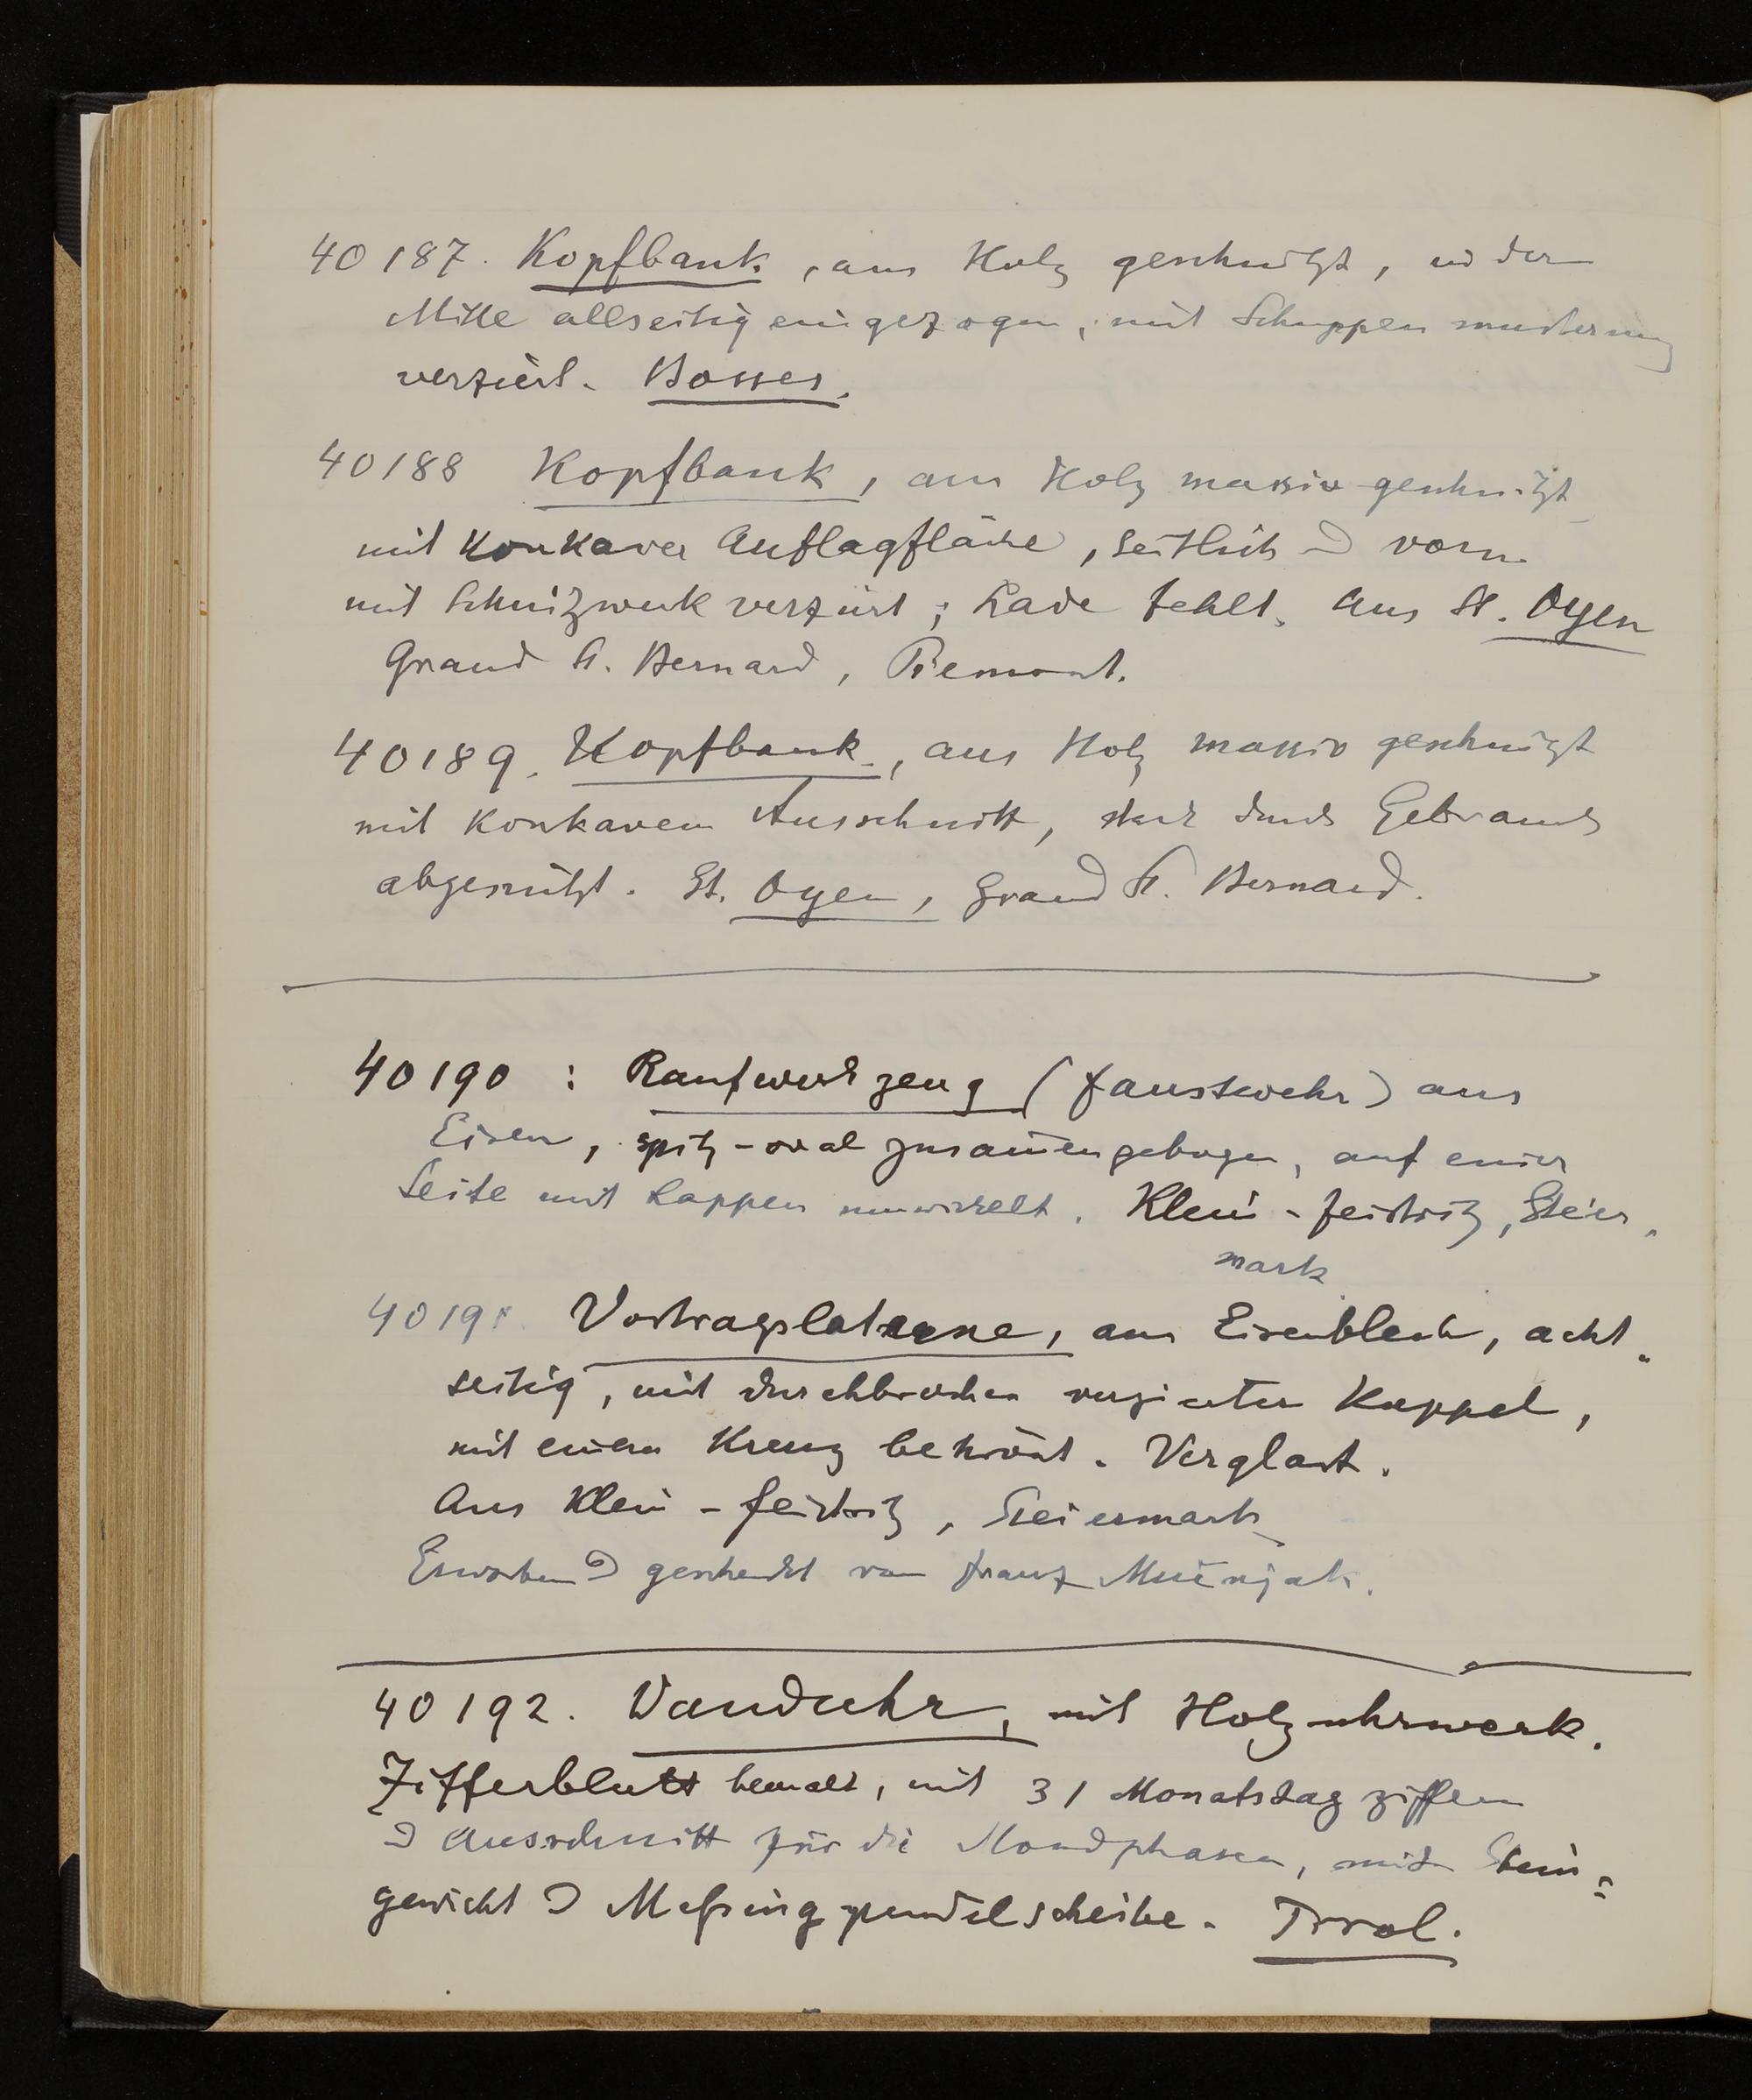 40187. Kopfbank, aus Holz geschnitzt, in der
Mitte allseitig eingezogen, mit Schuppenmusterung
verziert. Bosses.
40188 Kopfbank, aus Holz massiv geschnitzt
mit konkaver Auflagfläche, seitlich & vorn
mit Schnitzwerk verziert; Lade fehlt. Aus St. Oyen
Grand St. Bernard, Piemont.
40189. Kopfbank, aus Holz massiv geschnitzt
mit konkavem Ausschnitt, stark durch Gebrauch
abgenützt. St. Oyen, Grand St. Bernard.
40190 : Raufwerkzeug (Faustwehr) aus
Eisen, spitz-oval zusam̄engebogen, auf einer
Seite mit Lappen umwickelt. Klein-Feistritz, Steier„
mark
40191. Vortragslaterne, aus Eisenblech, acht„
seitig, mit durchbrochen verzierter Kuppel,
mit einem Kreuz bekrönt. Verglast.
Aus Klein-Feistritz, Steiermark
Erworben & geschenkt von Franz
40192. Wanduhr, mit Holzuhrwerk.
Zifferblatt bemalt, mit 31 Monatstagziffern
& Ausschnitt für die Mondphasen, mit Stein=
gewicht & Meßingpendelscheibe. Tirol.